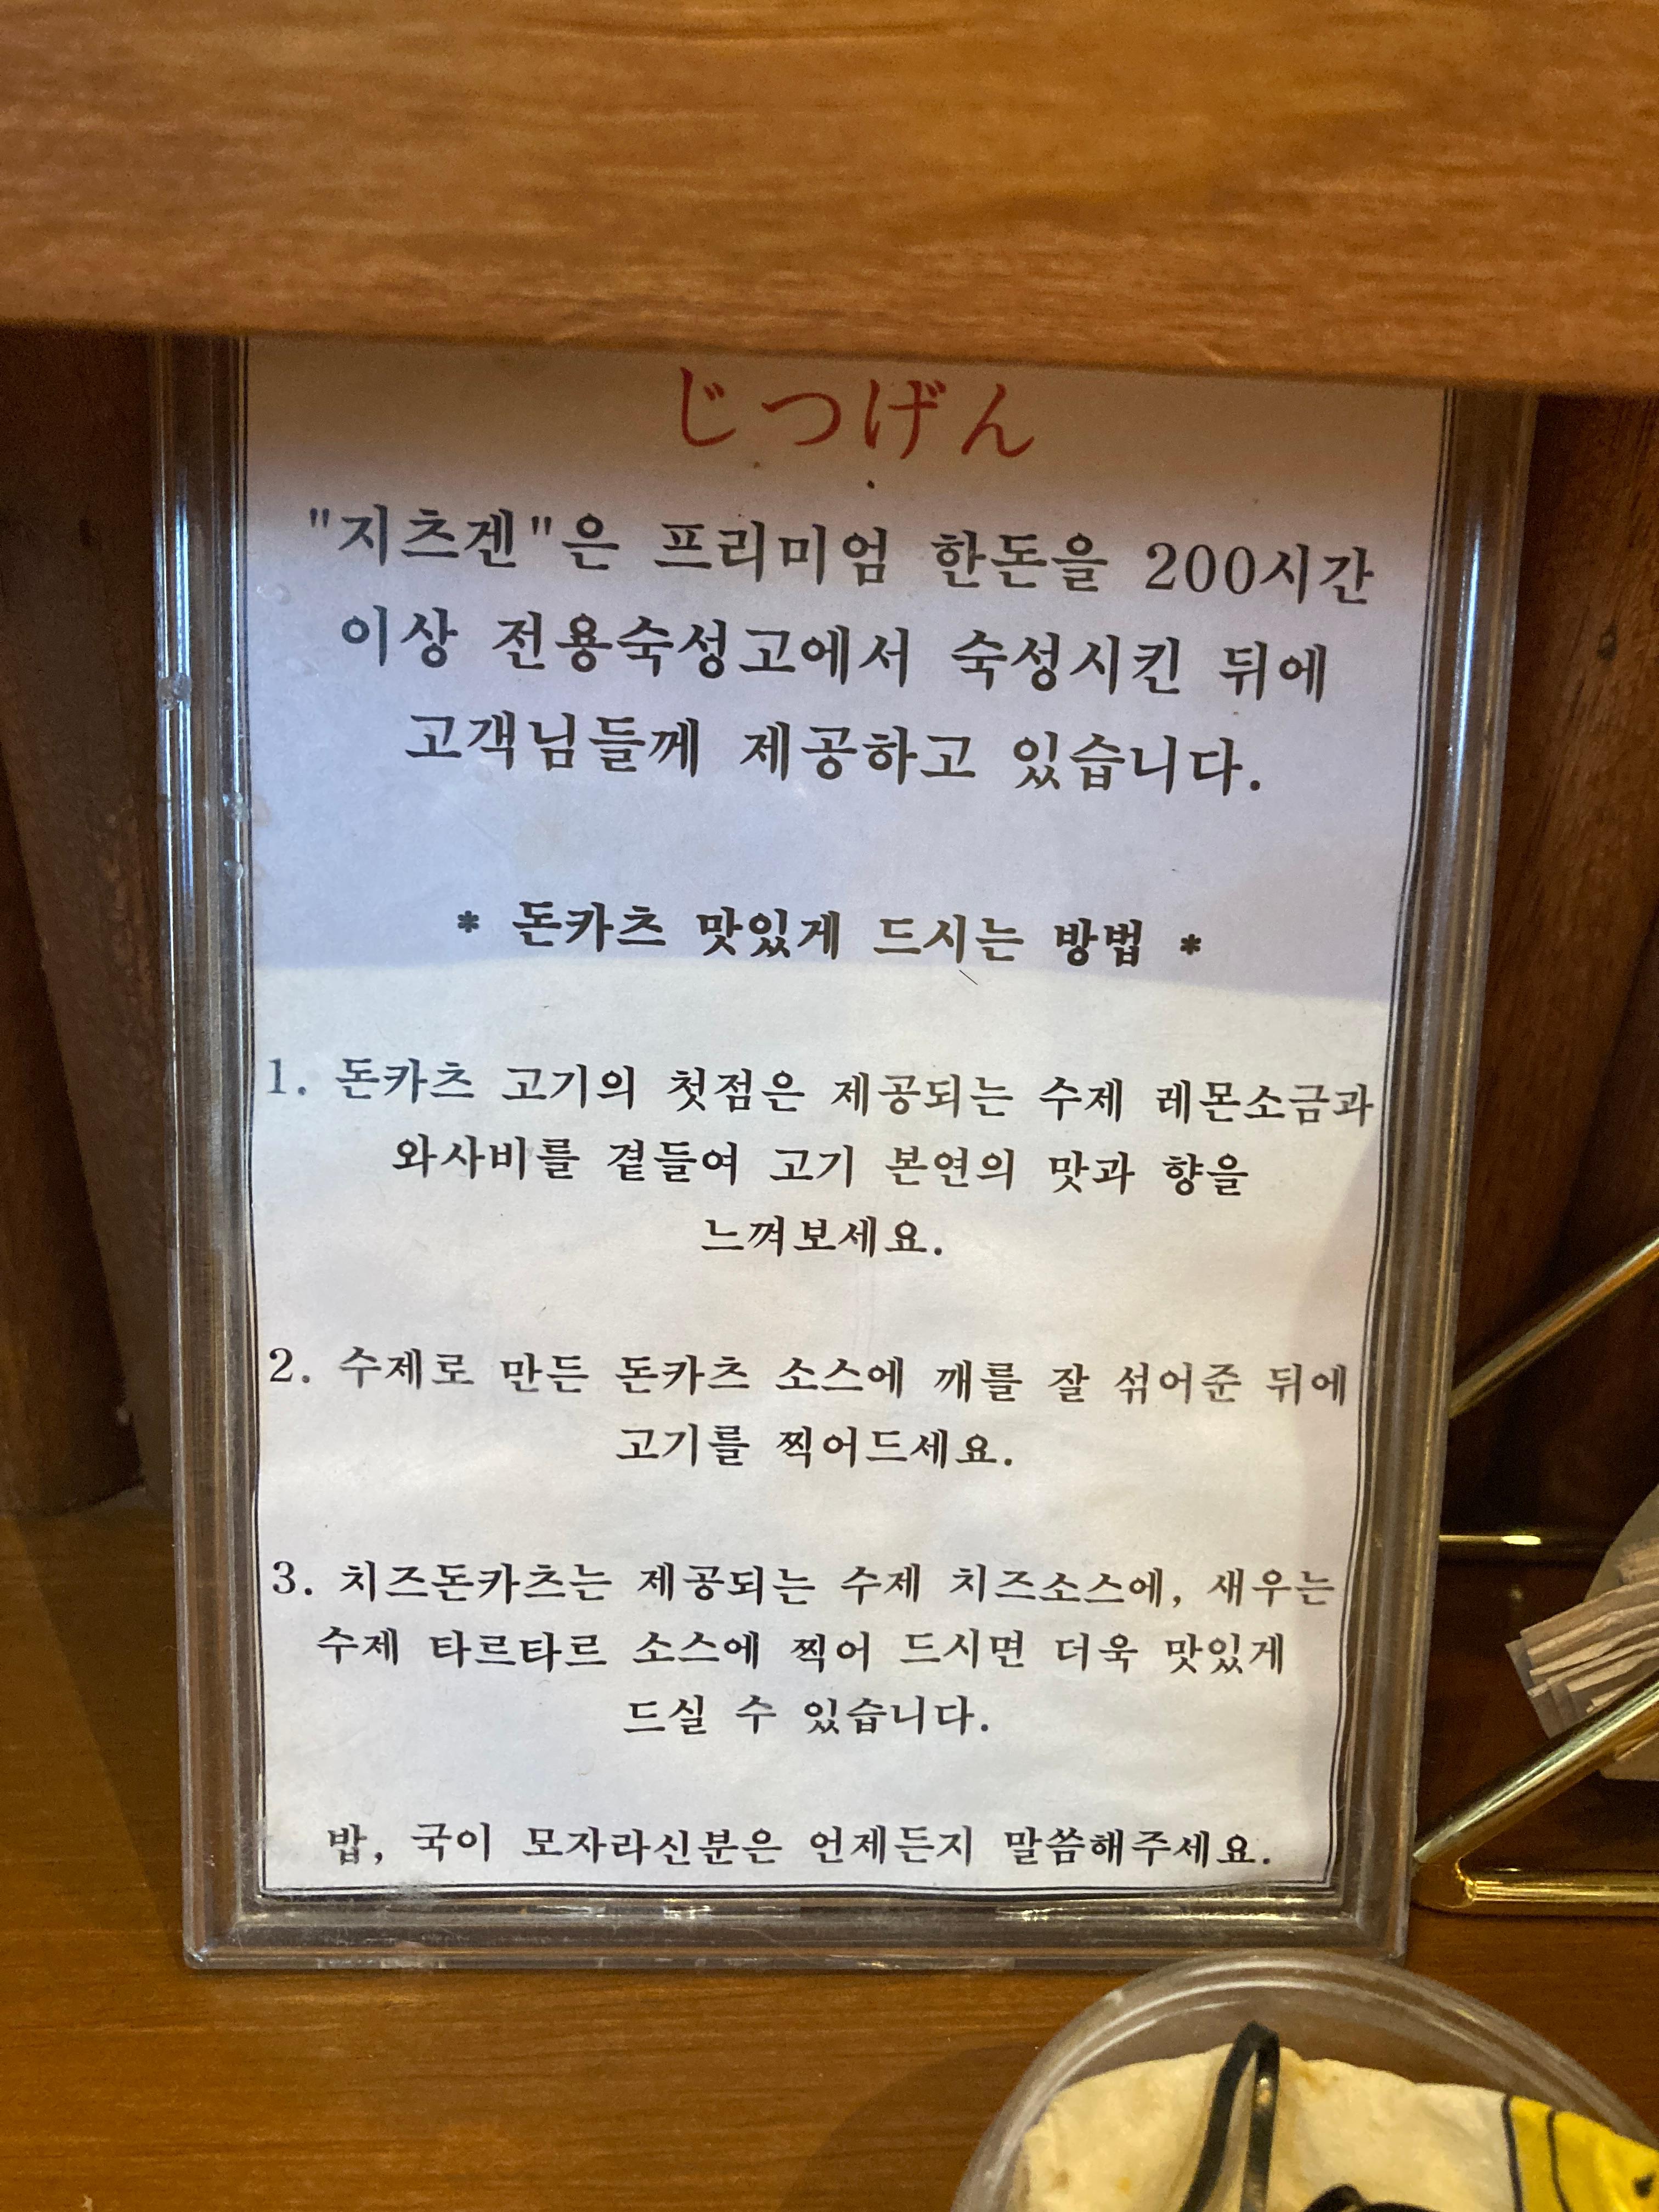 じつげん
"지츠겐"은 프리미엄 한돈을 200시간
이상 전용숙성고에서 숙성시킨 뒤에
고객님들께 제공하고 있습니다.
* 돈카츠 맛있게 드시는 방법 *
1. 돈카츠 고기의 첫점은 제공되는 수제 레몬소금과
와사비를 곁들여 고기 본연의 맛과 향을
느껴보세요.
2. 수제로 만든 돈카츠 소스에 깨를 잘 섞어준 뒤에
고기를 찍어드세요.
3. 치즈돈카츠는 제공되는 수제 치즈소스에, 새우는
수제 타르타르 소스에 찍어 드시면 더욱 맛있게
드실 수 있습니다.
밥, 국이 모자라신분은 언제든지 말씀해주세요.